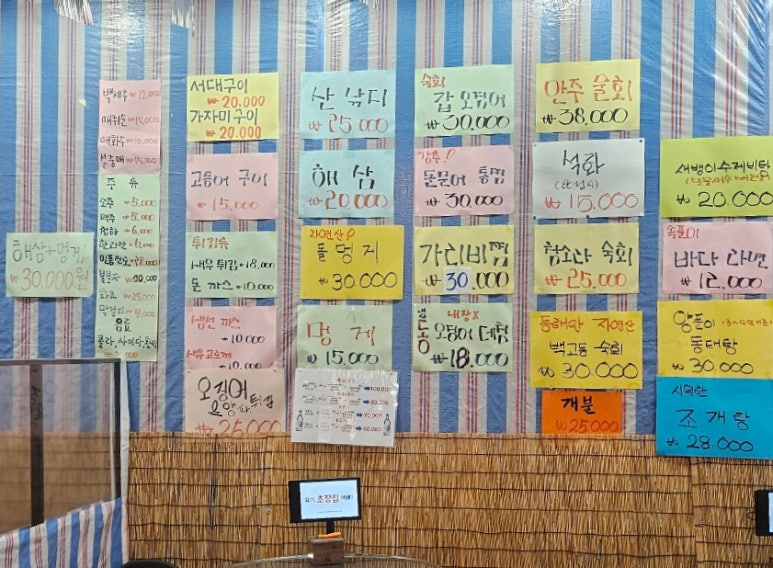 해삼+멍게
₩30.000원
백세주 ₩12,000
매취순 ₩15,000
매화수 ₩10,000
설중매 ₩15,000
주류
소주 5,000
맥주 5,000
청하 6,000
한라산 6,000
복분자
화요 25,000
막걸리 4,000
음료
콜라, 사이다, 환타
서대구이
₩20.000
가자미구이
₩20.000
고등어 구이
₩15,000
튀김류
새우튀김 18,000
돈까스 10,000
생선까스
10,000
새우고로케
10,000
오징어
튀김
₩25000
산 낙지
₩25.000
해 삼
₩20.000
자연산
돌 멍 게
₩30000
멍 게
₩15.000
숙회
갑 오징어
₩30.000
강추!
돌문어 통찜
₩30.000
가리비찜
₩30.000
내장X
통 오징어 데침
₩18.000
안주 물회
₩38.000
석화
₩15.000
참소라 숙회
₩25.000
동해안 자연산
백고동 숙회
₩30.000
개불
₩25.000
새뱅이수제비탕
₩20.000
바다 라면
₩12.000
양푼이
동태탕
₩30.000
시원한
조개탕
₩28.000
초장집